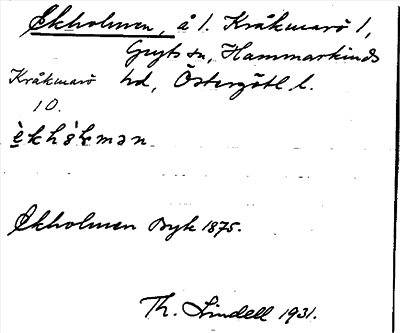 Ekholmen, å 1. Kråkmarö 1,
Gryts sn, Hammarkinds
Kråkmarö hd, Östergötl l.
10.
Ekholmen Byk 1875.
Th. Lindell 1931.